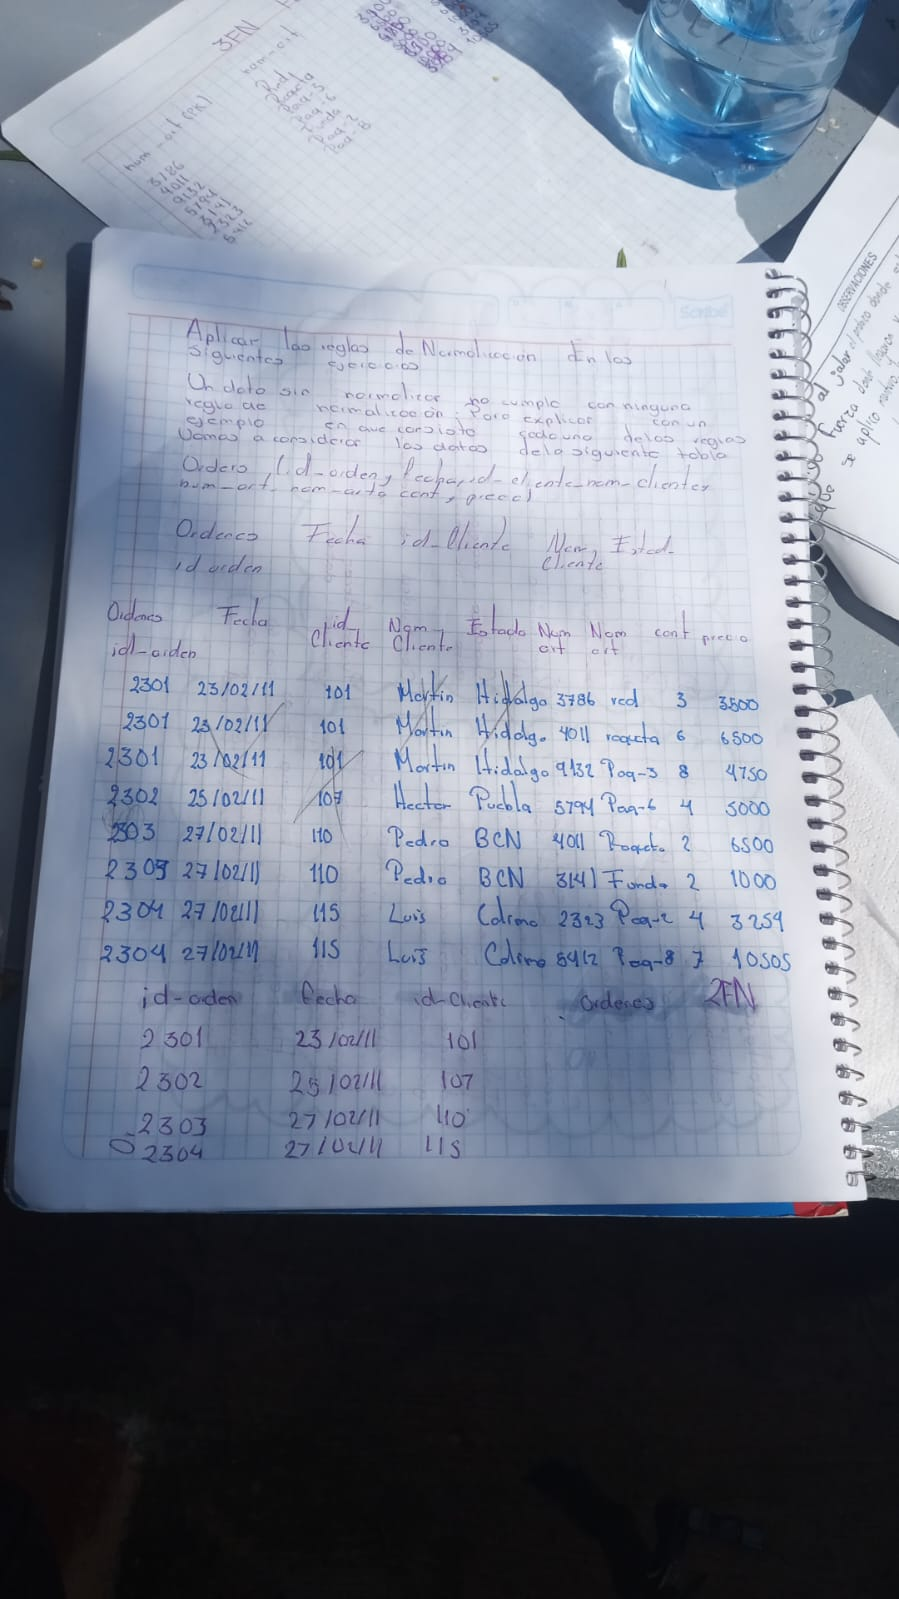 3FN
num-art (PK)
nom-art
3786
4011
9132
5794
3141
2323
5412
Red
Raqueta
Paq-3
Paq-6
Funda
Paq-2
Paq-8
OBSERVACIONES
Scribe
Aplicar las reglas de Normalicación En los
siguientes ejercicios
Un dato sin normalizar no cumple con ninguna
regla de normalicación. Para explicar con un
ejemplo en que consiste cada una de las reglas
Vamos a considerar los datos de la siguiente tabla
Orders (id-orden, fecha, id-cliente, nom-cliente,
num-art, nom-art, cant, precio)
Ordenes Fecha id-Cliente Nom. Estad-
id orden Cliente
Ordenes Fecha id Nom- Estado Num Nom cant precio
id-orden Cliente Cliente art art
2301 23/02/11 101 Martin Hidalgo 3786 red 3 3500
2301 23/02/11 101 Martin Hidalgo 4011 raqueta 6 6500
2301 23/02/11 101 Martin Hidalgo 9132 Paq-3 8 4750
2302 25/02/11 107 Hector Puebla 5794 Paq-6 4 5000
2303 27/02/11 110 Pedro BCN 4011 Raqueta 2 6500
2303 27/02/11 110 Pedro BCN 3141 Funda 2 1000
2304 27/02/11 115 Luis Colima 2323 Paq-2 4 3254
2304 27/02/11 115 Luis Colima 5412 Paq-8 7 10505
id-orden fecha id-Cliente Ordenes 2FN
2301 23/02/11 101
2302 25/02/11 107
2303 27/02/11 110
2304 27/02/11 115